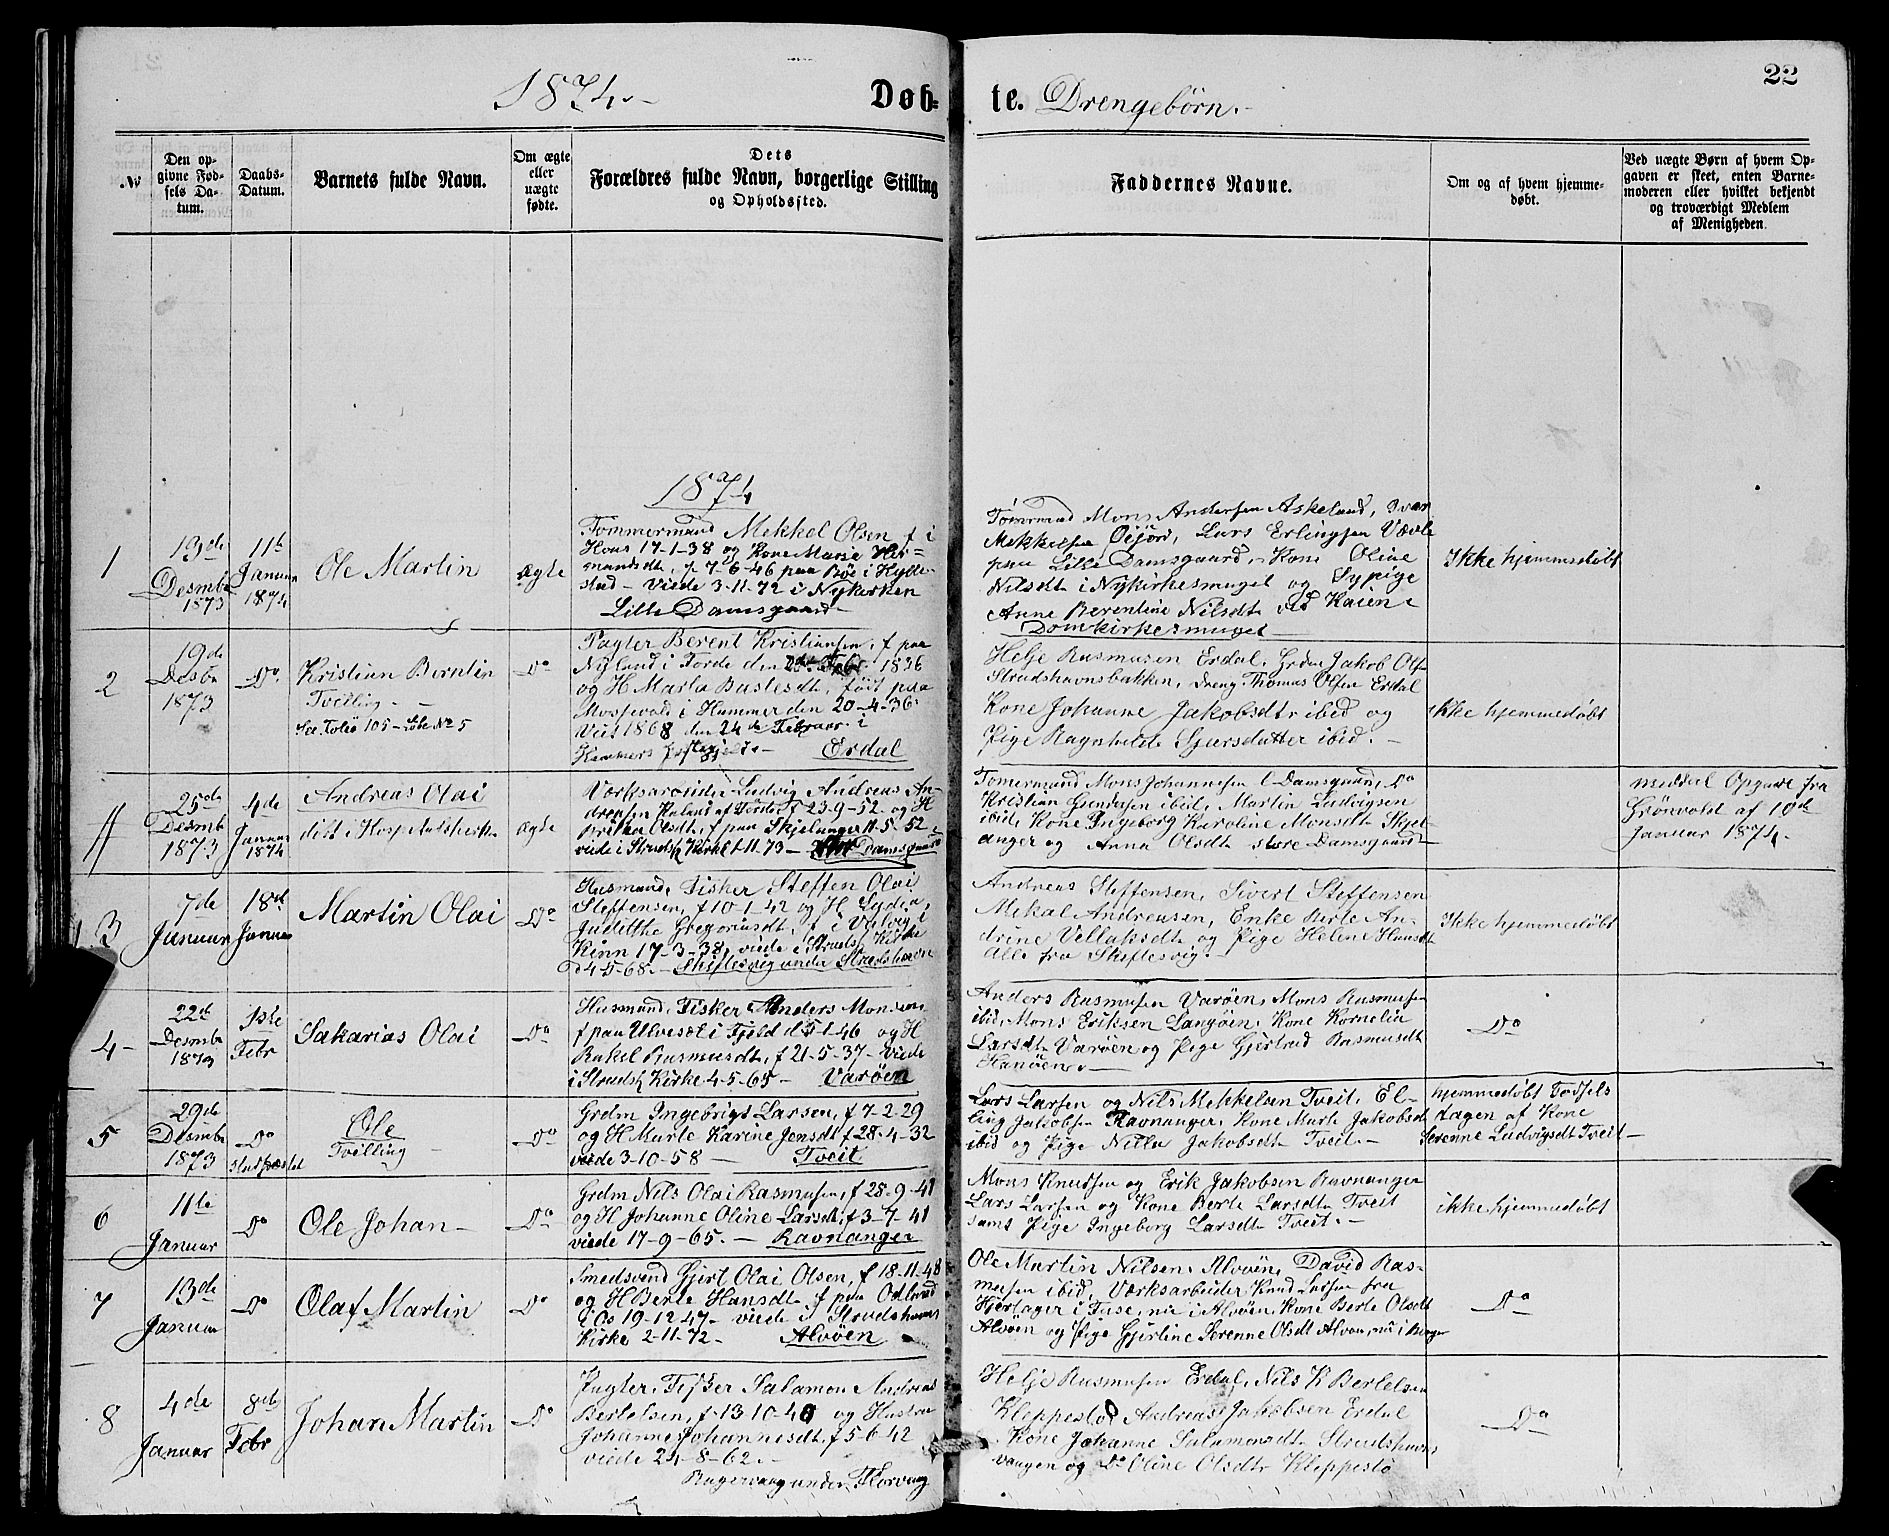 22
1874. Døb- te. Drengebørn.
№
Den op-
givne Fød-
sels Da-
tum.
Daabs-
Datum.
Barnets fulde Navn.
Om ægte
eller
uægte
fødte.
Dets
Forældres fulde Navn, borgerlige Stilling
og Opholdssted.
Faddernes Navne.
Om og af hvem hjemme-
døbt.
Ved uægte Børn af hvem Op-
gaven er skeet, enten Barne-
moderen eller hvilket bekjendt
og troværdigt Medlem
af Menigheden.
1874
1
13de
Desmb
1873
11te
Januar
1874
Ole Martin
ægte
Tømmermand Mekkel Olsen f i
Hous 17-1-38 og Kone Marie Her=
mandsdt, f. 7-6-46 paa Bøe i Hylle-
stad - Viede 3-11-72 i Nykirken
Lille Damsgaard
Tømmermand Mons Andersen Askeland, Ivar
Mekkelsen Lars Erlingsen
paa Lille Damsgaard. Kone Oline
Nilsdt i Nykirkesmuget og Sypige
Anne Berentine Nilsdt ved Kaien
Domkirkesmuget
Ikke hjemmedøbt
2
19de
Desbr
1873
Do
Kristian Berntin
Tvilling -
See Folio 105 - Løbe No 5
Do
Pagter Berent Kristiansen, f paa
Nyland i Førde den 1836
og H Marta født paa
i Hammer den 20-4-36.
Viet 1868 den 24de Februar i
Hammers Præstegjeld. - Erdal
Helje Rasmusen Erdal, Jakob Ols
Strudshavnsbakken, Dreng Thomas Olsen Erdal
Kone Johanne Jakobsdtr ibid og
Pige Ragnhilde Sjursdatter ibid. -
ikke hjemmedøbt
25de
Desmb
1873
4de
Januar
1874
Andreas Olai
døbt i Hospitalskirken
ægte
Værksarbeider Ludvig Andreas An-
dreasen f 23-9-52 og H
Olsdt, f paa Skjelanger 11-5-52
viede i Strudsh Kirke 1-11-73 - Damsgaard
Tømermand Mons Johannesen l Damsgaard, Do
Kristian ibid, Martin Ludvigsen
ibid, Kone Ingeborg Karoline Monsdt Skjel-
anger og Anna Olsdt store Damsgaard
meddel Opgave fra
Grönvold af 10de
Januar 1874.
3
7de
Januar
18de
Januar
Martin Olai
Do
Husmand, Fisker Steffen Olai
Steffensen, f 10-1-42 og H Lydia
Judithe Gregoriusdt, f i
Kinn 17-3-38, viede i Strudsh Kirke
d 4-5-68. - Skiftesvig under Strudshavn
Andreas Steffensen, Sivert Steffensen
Mekal Andreasen, Enke Berte An-
drine og Pige Helene Hansdt
Alle fra Skiftesvig. -
Ikke hjemmedøbt
4-
22de
Desmb
1873
1ste
Febr
Sakarias Olai
Do
Husmand, Fisker Anders Monsen
f paa Ulveset i Fjeld d 5-1-46 og H
Rakel Rasmusdt, f 21-5-37 - viede
i Strudsh Kirke 4-5-65 - Varöen
Anders Rasmusen Varöen, Mons Rasmusen
ibid, Mons Eriksen Langöen, Kone Kornelia
Larsdt Varöen og Pige Gjertrud Rasmusdt
Hanöen. -
Do
5
29de
Desmb
1873
Do
Ole
Tvilling -
Do
Grdm Ingebrigt Larsen, f 7-2-29
og H Marte Karine Jensdt f 28-4-32
viede 3-10-58 - Tveit
Lars Larsen og Nils Mekkelsen Tveit, El-
ling Jakobsen Ravnanger, Kone Marte Jakobsdt
ibid og Pige Nilla Jakobsdt Tveit. -
hjemmedøbt Fødsels
dagen af Kone
Serenne Ludvigsdt Tveit -
6
11te
Januar
Do
Ole Johan -
Do
Grdm Nils Olai Rasmusen, f 28-9-41
og H Johanne Oline Larsdt, f 3-7-41
viede 17-9-65. - Ravnanger
Mons Knudsen og Erik Jakobsen Ravnanger
Lars Larsen og Kone Berte Larsdt Tveit
samt Pige Ingeborg Larsdt Tveit. -
ikke hjemmedøbt
7
13de
Januar
Do
Olaf Martin
Do
Smedsvend Gjert Olai Olsen, f 18-11-48
og H Berte Hansdt f paa
i Os 19-12-47 - viede i Strudshavns
Kirke 2-11-72. - Alvöen
Ole Martin Nilsen Alvöen, David Ras-
musen ibid, Værksarbeider Knud Larsen fra
i Fuse, nu i Alvöen, Kone Berte Olsdt
Alvöen og Pige Gjertine Serenne Olsdt Alvöen, nu i Bergen
Do
8
4de
Januar
8de
Febr
Johan Martin
Do
Pagter, Fisker Salamon Andreas
Bertelsen, f 13-10-40 og Hustru
Johanne Johannesdt, f 5-6-42
viede 24-8-62. -
under Florvaag
Helje Rasmusen Erdal, Nils K Bertelsen
Kleppestø Andreas Jakobsen Erdal
Kone Johanne Salamonsdt Strudshavns
vaagen og Do Oline Olsdtr Kleppestø
Do